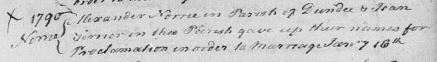 X 1790 Alexander Norrie in Parish of Dundee & Jean
Norrie in this Parish gave up their names for
Proclamation in order to Marriage Jan.y 16th